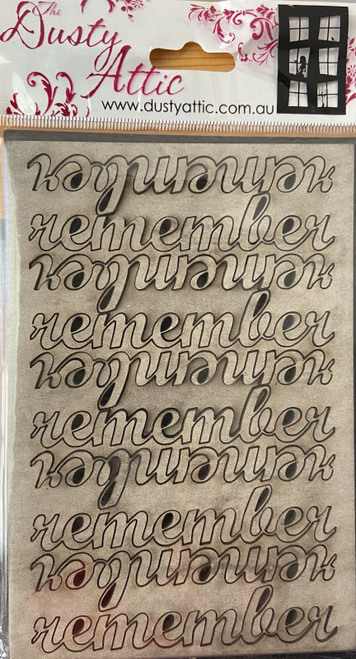 The
Dusty
Attic
www.dustyattic.com.au
remember
remember
remember
remember
remember
remember
remember
remember
remember
remember